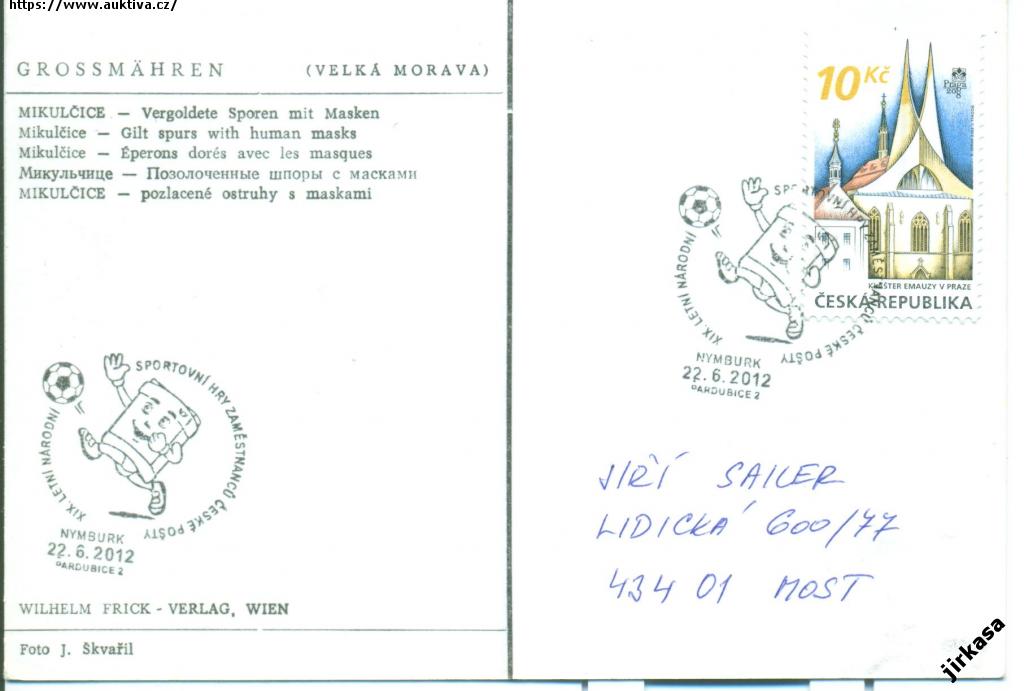 https://www.auktiva.cz/
GROSSMÄHREN (VELKÁ MORAVA)
MIKULČICE — Vergoldete Sporen mit Masken
Mikulčice — Gilt spurs with human masks
Mikulčice — Éperons dorés avec les masques
Микульчице — Позолоченные шпоры с масками
MIKULČICE — pozlacené ostruhy s maskami
XIX. LETNÍ NÁRODNÍ SPORTOVNÍ HRY ZAMĚSTNANCŮ ČESKÉ POŠTY
NYMBURK
22.6.2012
PARDUBICE 2
WILHELM FRICK - VERLAG, WIEN
Foto J. Škvařil
10 Kč
Praga
2008
KLÁŠTER EMAUZY V PRAZE
ČESKÁ REPUBLIKA
XIX. LETNÍ NÁRODNÍ SPORTOVNÍ HRY ZAMĚSTNANCŮ ČESKÉ POŠTY
NYMBURK
22.6.2012
PARDUBICE 2
JIŘÍ SAILER
LIDICKÁ 600/77
434 01 MOST
jirkasa